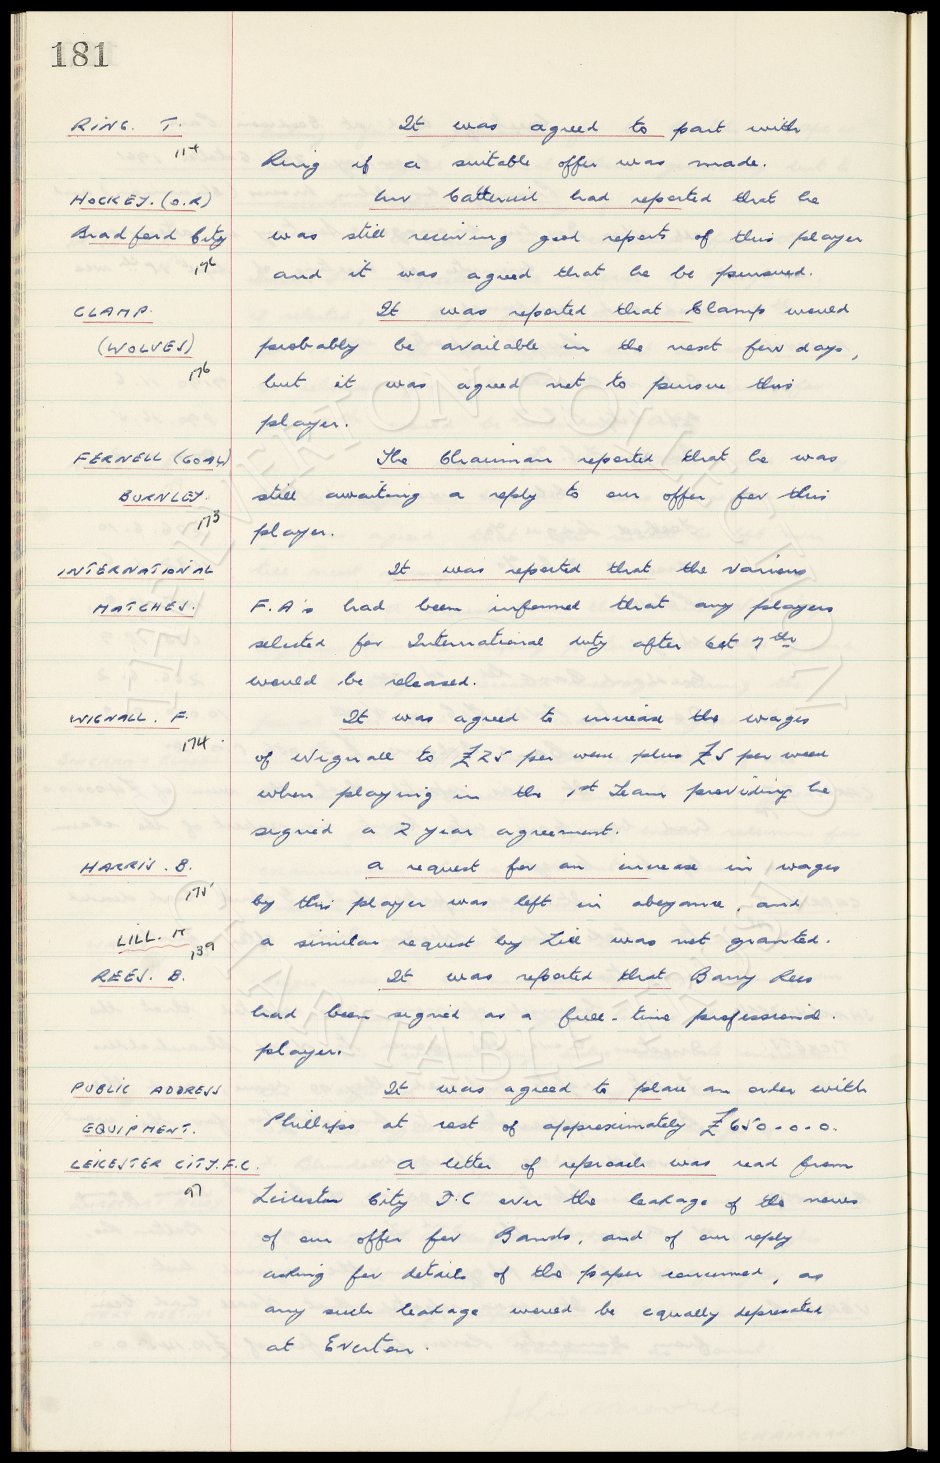 181
RING. T. It was agreed to part with
114 Ring if a suitable offer was made.
HOCKEY. (O.R) Mr Catterick had reported that he
Bradford City was still receiving good reports of this player
176 and it was agreed that he be pursued.
CLAMP. It was reported that Clamp would
(WOLVES) probably be available in the next few days,
176 but it was agreed not to pursue this
player.
FERNELL (GOAL) The Chairman reported that he was
BURNLEY. still awaiting a reply to our offer for this
173 player.
INTERNATIONAL It was reported that the various
MATCHES. F.A's had been informed that any players
selected for International duty after Oct 7th
would be released.
WIGNALL. F. It was agreed to increase the wages
174. of Wignall to £25 per week plus £5 per week
when playing in the 1st Team providing he
signed a 2 year agreement.
HARRIS. B. A request for an increase in wages
175 by this player was left in abeyance, and
LILL. M 139 a similar request by Lill was not granted.
REES. B. It was reported that Barry Rees
had been signed as a full-time professional.
player.
PUBLIC ADDRESS It was agreed to place an order with
EQUIPMENT. Phillips at cost of approximately £650-0-0.
LEICESTER CITY.F.C. A letter of reproach was read from
97 Leicester City F.C over the leakage of the news
of our offer for Banks, and of our reply
asking for details of the paper concerned, as
any such leakage would be equally deprecated
at Everton.